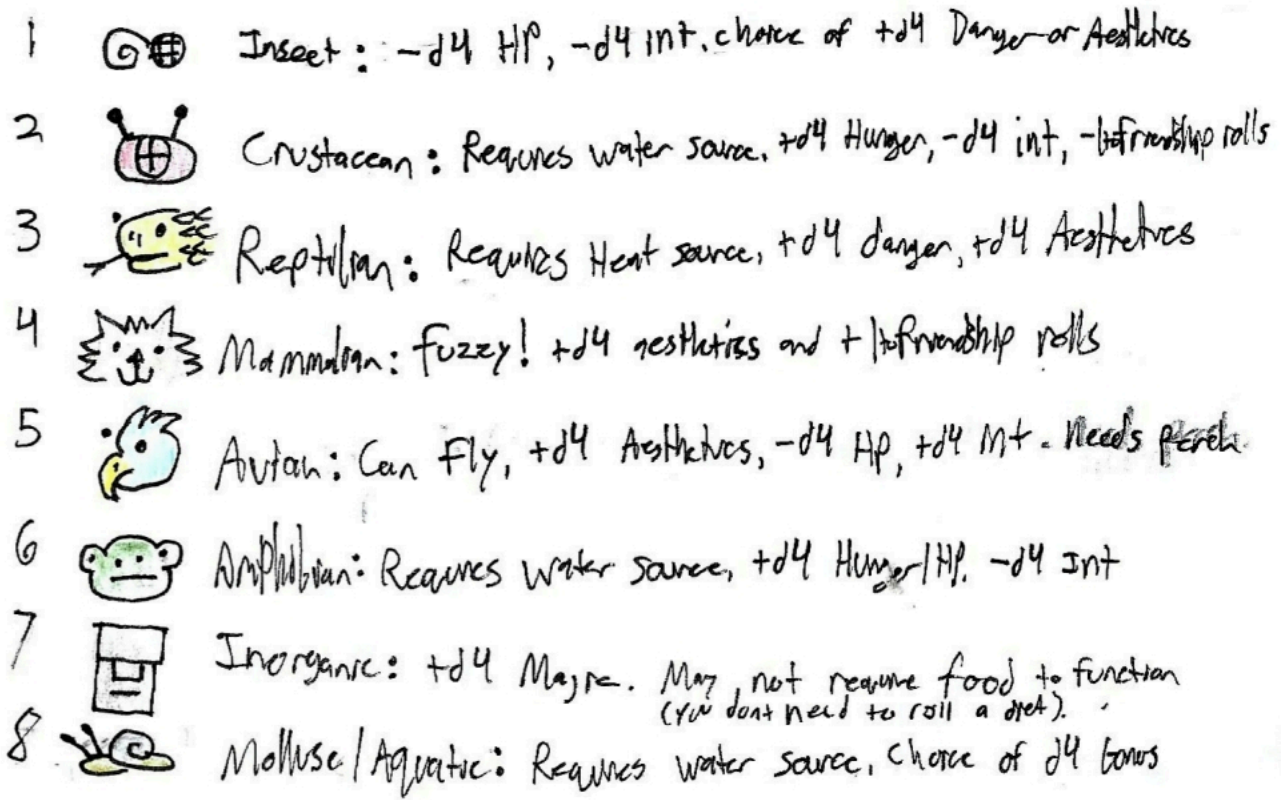 1 Insect: -d4 HP, -d4 int. choice of +d4 Danger or Aesthetics
2 Crustacean: Requires water source, +d4 Hunger, -d4 int, -1 to friendship rolls
3 Reptilian: Requires Heat source, +d4 danger, +d4 Aesthetics
4 Mammalian: fuzzy! +d4 aesthetics and +1 to friendship rolls
5 Avian: Can Fly, +d4 Aesthetics, -d4 HP, +d4 Int. Needs perch
6 Amphibian: Requires water source, +d4 Hunger/HP. -d4 Int
7 Inorganic: +d4 Magic. May not require food to function
(you dont need to roll a diet).
8 Mollusc/Aquatic: Requires water source, Choice of d4 bonus